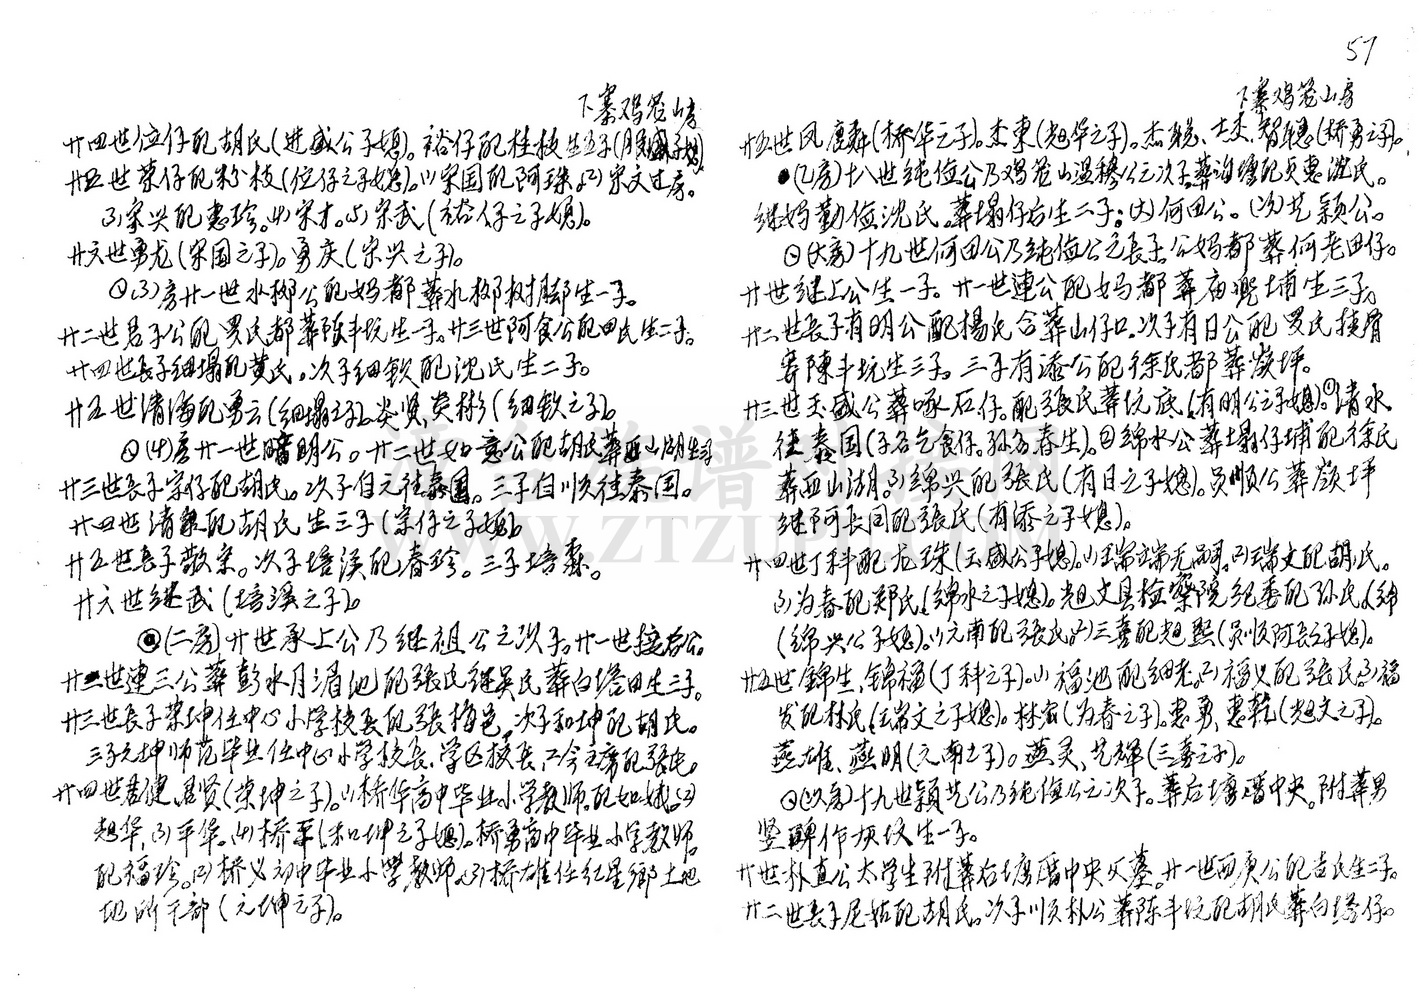 57
下寨鸡笼山房
廿四世位仔配胡氏(进盛公子媳)。裕仔配桂枝生五子
廿五世荣仔配粉枝(位仔之子媳)。(1)宋国配阿珠。(2)宋文过房。
(3)宋兴配惠珍。(4)宋才。(5)宋武(裕仔之子媳)。
廿六世勇龙(宋国之子)。勇庆(宋兴之子)。
(3)房廿一世水梆公配妈都葬水梆树脚生一子。
廿二世君子公配罗氏都葬陈斗坑生一子。廿三世阿食公配田氏生二子。
廿四世长子细塌配黄氏。次子细钦配沈氏生二子。
廿五世清海配勇云(细塌之子)。炎贤、炎彬(细钦之子)。
(4)房廿一世暗明公。廿二世如意公配胡氏葬西山湖生
廿三世长子宗仔配胡氏。次子自元往泰国。三子自顺往泰国。
廿四世清 配胡氏生三子(宗仔之子媳)。
廿五世长子敬宗。次子培溪配春珍。三子培森。
廿六世继武(培溪之子)。
(二房)廿世承上公乃继祖公之次子。廿一世接 公。
廿二世连三公葬彭水月眉池配张氏继吴氏葬白塔田生三子。
廿三世长子荣坤任中心小学校长配张梅色,次子和坤配胡氏。
三子元坤师范毕业任中心小学校长、学区校长、工会主席配张氏。
廿四世君健、君贤(荣坤之子)。(1)桥华高中毕业小学教师配如娥。(2)
想华,(3)平华。(4)桥 (和坤之子媳)。桥勇高中毕业小学教师。
配福珍。(2)桥义初中毕业小学教师。(3)桥雄任红星乡土地
地所干部(元坤之子)。
下寨鸡笼山房
廿五世凤、庭麟(桥华之子)。杰东(想华之子)。杰聪、 、智聪(桥勇之子)。
(乙房)十八世纯位公乃鸡笼山温穆公次子葬 塘配贝惠沈氏。
继妈勤俭沈氏。葬塌仔右生二子:(大)何田公。(次)芝颖公。
(大房)十九世何田公乃纯位公之长子公妈都葬何老田仔。
廿世继上公生一子。廿一世連公配妈都葬庙 埔生三子。
廿二世长子有明公配杨氏合葬山仔口。次子有日公配罗氏
葬陳斗坑生三子。三子有添公配徐氏都葬岭坪。
廿三世玉盛公葬啄石仔。配張氏葬坑底(有明公之子媳)。①清水
往泰国(子名乞食仔。孙名春生)。②綿水公葬塌仔埔配徐氏
葬西山湖。(3)绵兴配張氏(有日之子媳)。员順公葬岭坪
继阿长同配張氏(有添之子媳)。
廿四世丁科配龙珠(玉盛公子媳)。(1)瑞端无 。(2)瑞文配胡氏。
(3)为春配郑氏(綿水之子媳)。想文县检察院纪委配孙氏(綿
(绵兴公子媳)。(1)元南配张氏(2)三喜配想熙(员顺阿长子媳)。
廿五世錦生、錦福(丁科之子)。(1)福池配细老。(2)福义配張氏(3)福
发配林氏(瑞文之子媳)。林富(为春之子)。惠勇、惠乾(想文之子)。
燕雄、燕明(元南之子)。燕灵、芝辉(三喜之子)。
(次房)十九世颖芝公乃纯位公之次子。葬后塘厝中央。附葬男
竖碑作灰坟生一子。
廿世朴直公太学生附葬后塘厝中央父墓。廿一世西庚公配吉氏生二子。
廿二世长子尼姑配胡氏。次子順朴公葬陈斗坑配胡氏葬白塔仔。
WWW.ZTZUPU.COM